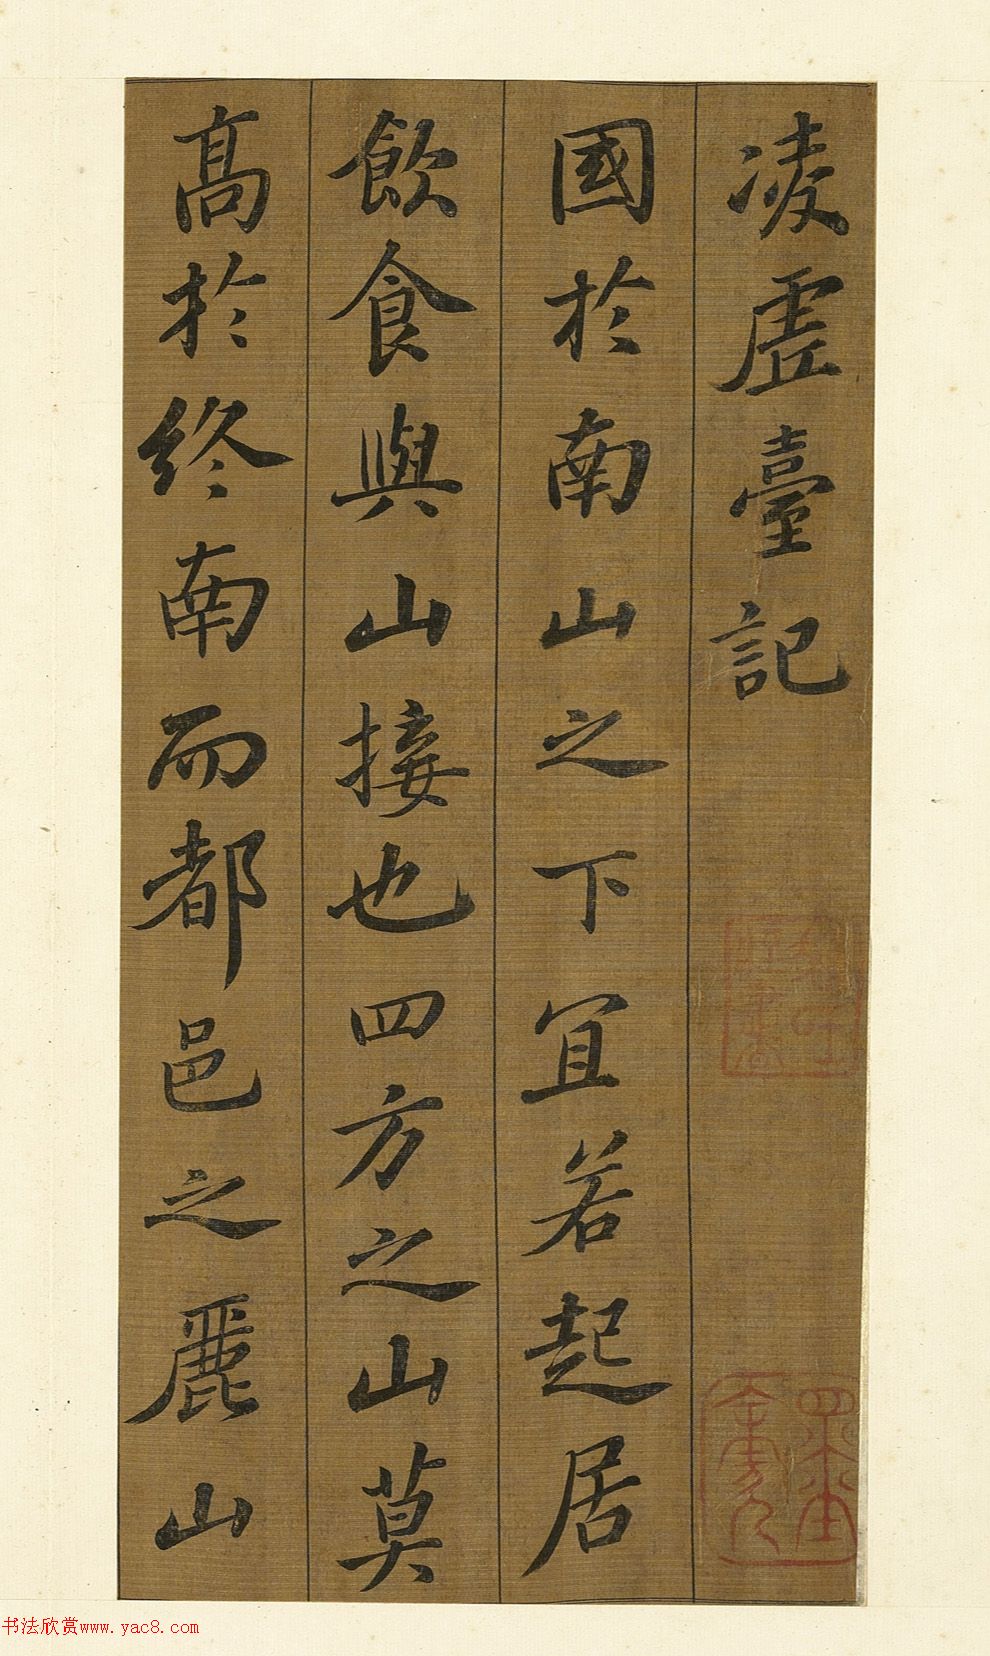 凌虛臺記
國於南山之下宜若起居
飲食與山接也四方之山莫
高於終南而都邑之麗山
书法欣赏www.yac8.com